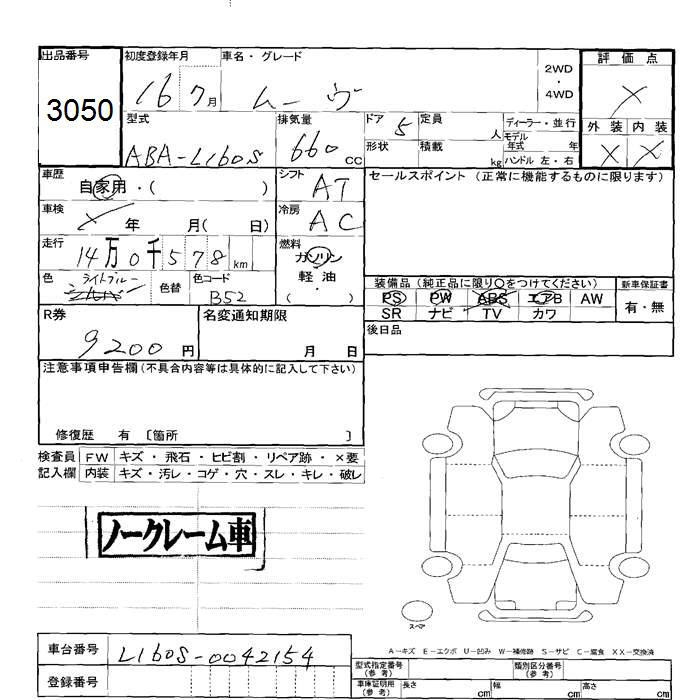 出品番号 初度登録年月 車名・グレード 2WD・4WD 評価点
3050 16 7月 ムーヴ ×
型式 排気量 ドア 定員 ディーラー・並行 外装 内装
ABA-L160S 660cc 5 人 モデル年式 年 × ×
形状 積載 kg ハンドル 左・右
車歴 シフト セールスポイント (正常に機能するものに限ります)
自家用・( ) AT
車検 冷房
× 年 月( 日) AC
走行 燃料
14万0千578km ガソリン
色 ライトブルー 色替 色コード B52 軽油・( )
装備品 (純正品に限り○をつけてください) 新車保証書
PS PW ABS エアB AW 有・無
SR ナビ TV カワ
R券 名変通知期限 後日品
9200円 月 日
注意事項申告欄 (不具合内容等は具体的に記入して下さい)
修復歴 有 〔箇所 〕
検査員 FW キズ・飛石・ヒビ割・リペア跡・×要
記入欄 内装 キズ・汚レ・コゲ・穴・スレ・キレ・破レ
ノークレーム車
スペア
A-キズ E-エクボ U-凹み W-補修跡 S-サビ C-腐食 XX-交換済
車台番号 L160S-0042154
登録番号
型式指定番号(参考) 類別区分番号(参考)
車庫証明用(参考) 長さ cm 幅 cm 高さ cm